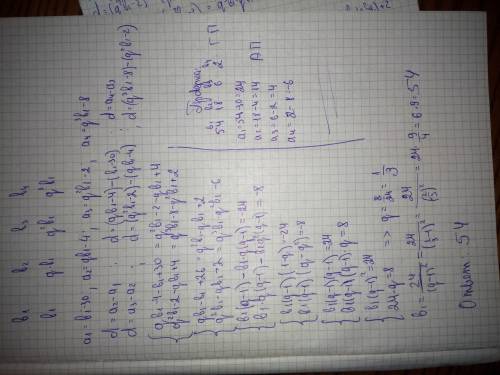 b₁ b₂ b₃ b₄
b₁ q·b₁ q²b₁ q³b₁
a₁=b₁-30, a₂=qb₁-4, a₃=q²b₁-2, a₄=q³b₁-8
d=a₂-a₁ ; d=(qb₁-4)-(b₁-30)
d=a₃-a₂ ; d=(q²b₁-2)-(qb₁-4) ; d=a₄-a₃ ; d=(q³b₁-8)-(q²b₁-2)
{ qb₁-4-b₁+30=q²b₁-2-qb₁+4
q²b₁-2-qb₁+4=q³b₁-8-q²b₁+2
{ qb₁-b₁+26=q²b₁-qb₁+2
q²b₁-qb₁+2=q³b₁-q²b₁-6
{ b₁(q-1)-b₁q(q-1)=-24
b₁q(q-1)-b₁q²(q-1)=-8
{ b₁(q-1)(1-q)=-24
b₁q(q-1)(1-q)=-8
{ b₁(q-1)(q-1)=24
b₁q(q-1)(q-1)=8
{ b₁(q-1)²=24
24·q=8 => q=8/24=1/3
b₁=24/(q-1)²=24/(1/3-1)²=24/(2/3)²=24·9/4=6·9=54
Ответ 54
Проверка:
b₁ b₂ b₃ b₄
54 18 6 2 ГП
a₁=54-30=24
a₂=18-4=14
a₃=6-2=4 АП
a₄=2-8=-6